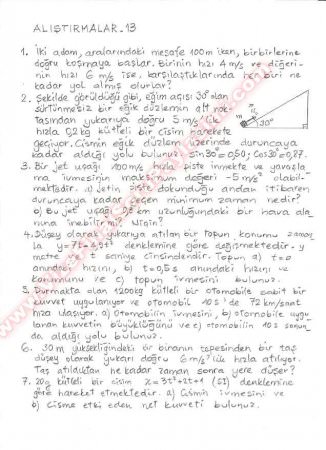 ALIŞTIRMALAR_13
1. İki adam, aralarındaki mesafe 100m iken, birbirlerine
doğru koşmaya başlar. Birinin hızı 4 m/s ve diğeri-
nin hızı 6 m/s ise, karşılaştıklarında her biri ne
kadar yol almış olurlar?
2. Şekilde görüldüğü gibi, eğim açısı 30° olan
sürtünmesiz bir eğik düzlemin alt nok-
tasından yukarıya doğru 5 m/s lik
hızla 0,2kg kütleli bir cisim harekete
geçiyor. Cismin eğik düzlem üzerinde duruncaya
kadar aldığı yolu bulunuz. sin30°=0,50; Cos30°=0,87.
30°
3. Bir jet uçağı 100m/s hızla piste inmekte ve yavaşla-
ma ivmesinin maximum değeri -5 m/s² olabil-
mektedir. a) Jetin piste dokunduğu andan itibaren
duruncaya kadar geçen minimum zaman nedir?
b) Bu jet uçağı uzunluğundaki bir hava ala-
nına inebilir mi? Niçin?
4. Düşey olarak yukarıya atılan bir topun konumu zaman-
la denklemine göre değişmektedir. y
metre t saniye cinsindendir. Topun a) t=0
anındaki hızını, b) t=0,5s anındaki hızını ve
konumunu ve c) topun ivmesini bulunuz.
5. Durmakta olan 1200kg kütleli bir otomobile sabit bir
kuvvet uygulanıyor ve otomobil 10s'de 72 km/saat
hıza ulaşıyor. a) Otomobilin ivmesini, b) otomobile uygu-
lanan kuvvetin büyüklüğünü ve c) otomobilin 10s sonun-
da aldığı yolu bulunuz.
6. 30m yüksekliğindeki bir binanın tepesinden bir taş
düşey olarak yukarı doğru 6m/s lik hızla atılıyor.
Taş atıldıktan ne kadar zaman sonra yere düşer?
7. 20g kütleli bir cisim x=3t²+2t+1 (SI) denklemine
göre hareket etmektedir. a) Cismin ivmesini ve
b) Cisme etki eden net kuvveti bulunuz.